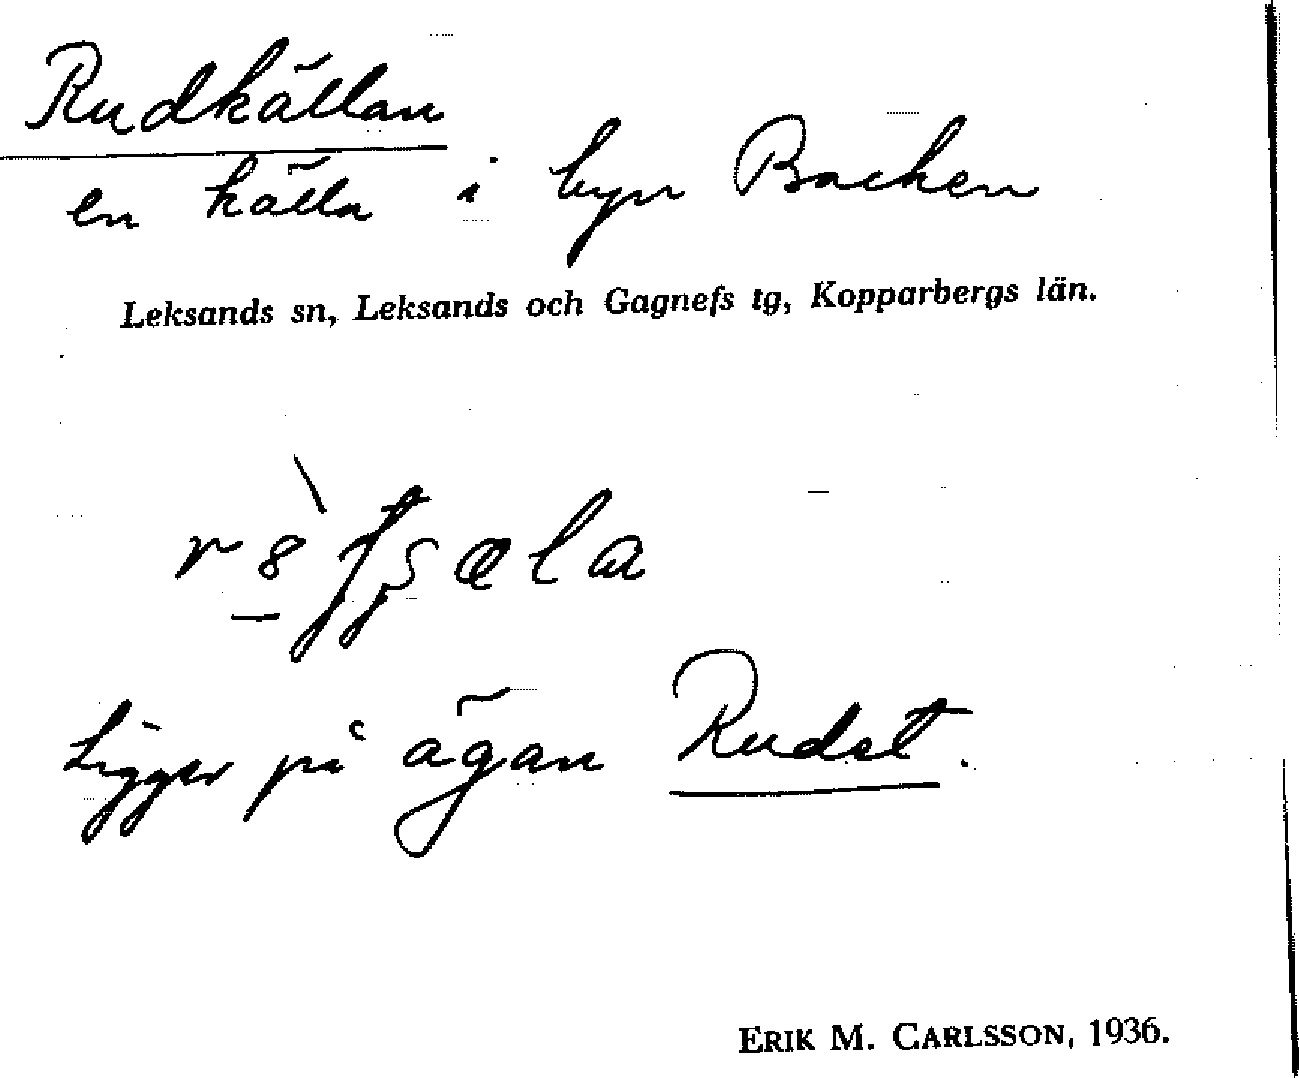 Rudkällan
en källa i byn Backen
Leksands sn, Leksands och Gagnefs tg, Kopparbergs län.
Ligger på ägan Rudet.
ERIK M. CARLSSON, 1936.